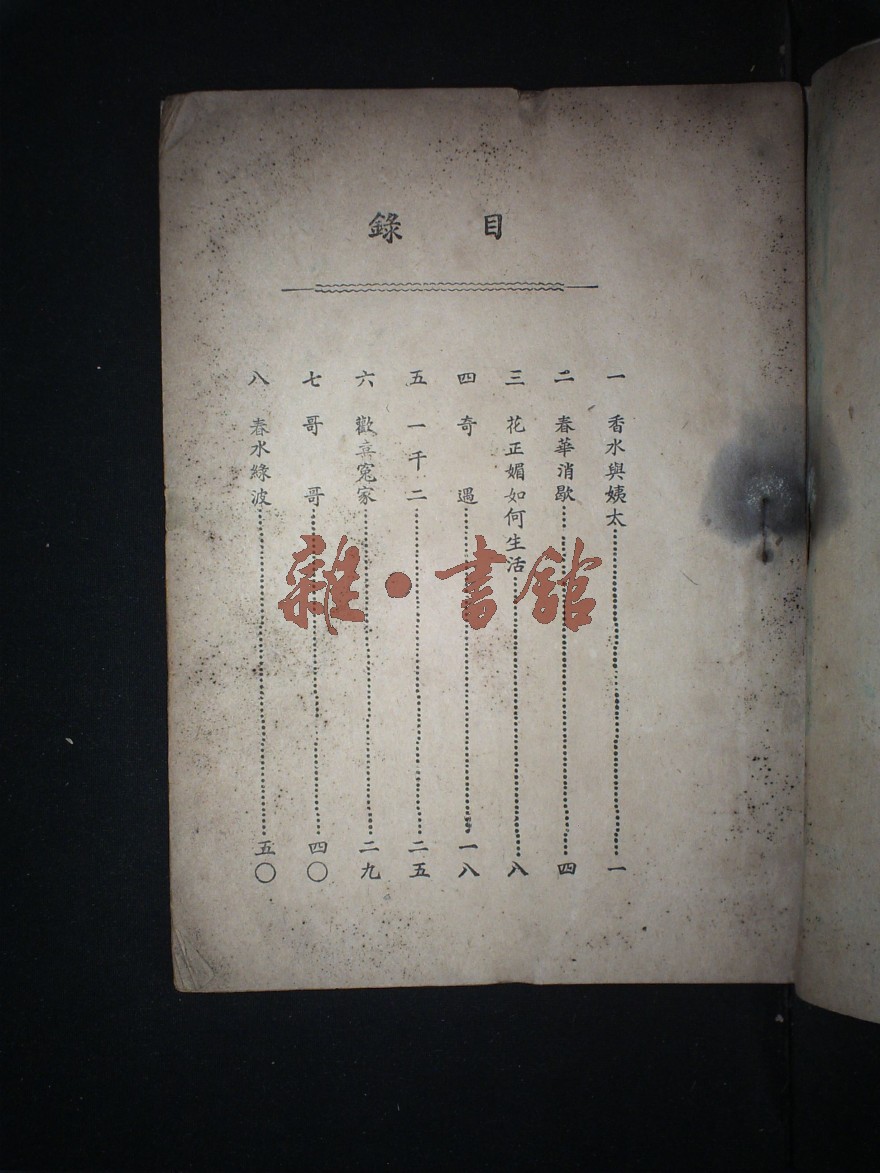 目錄
一 香水與姨太……一
二 春華消歇……四
三 花正媚如何生活……八
四 奇遇……一八
五 一千二……二五
六 歡喜冤家……二九
七 哥哥……四〇
八 春水綠波……五〇
雜·書館